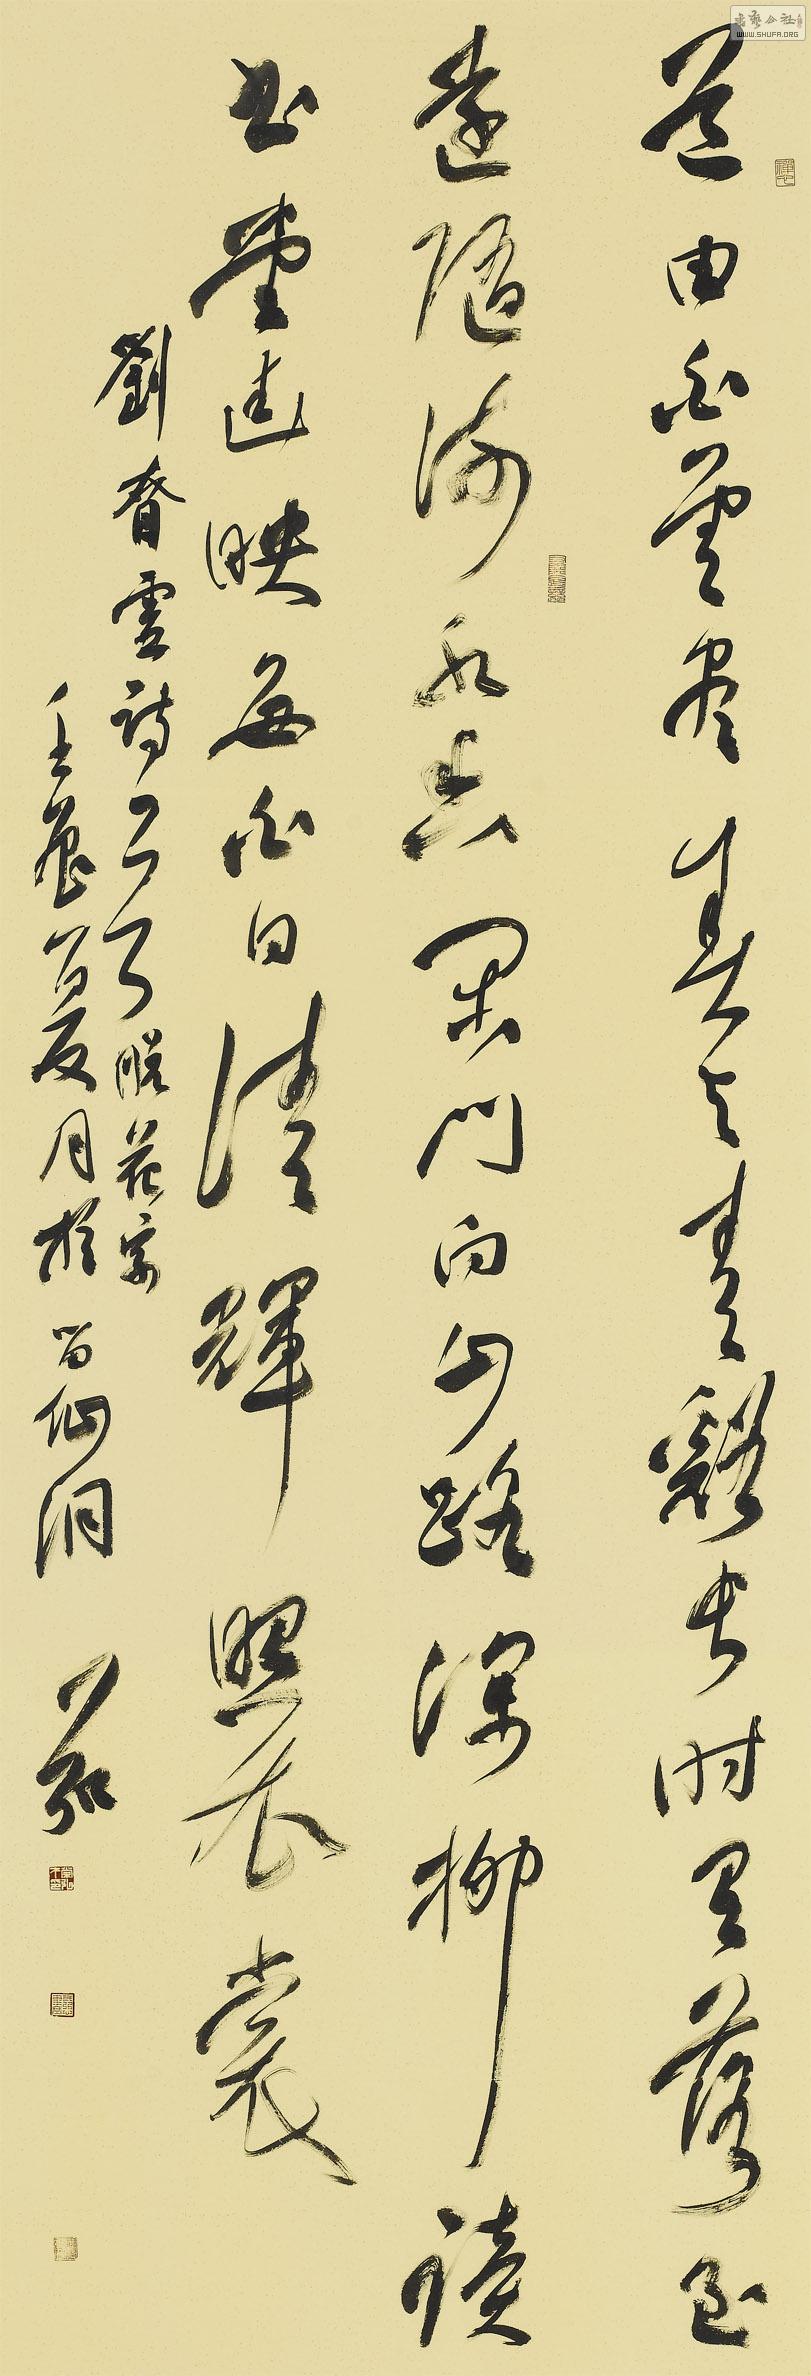 道由白雲盡春与青谿長時有落至
遠隨流水香閑門向山路深柳讀
書堂幽映每白日清輝照衣裳
劉眘虛詩一首脱花字
壬辰夏月於留仙洞
書藝公社
WWW.SHUFA.ORG